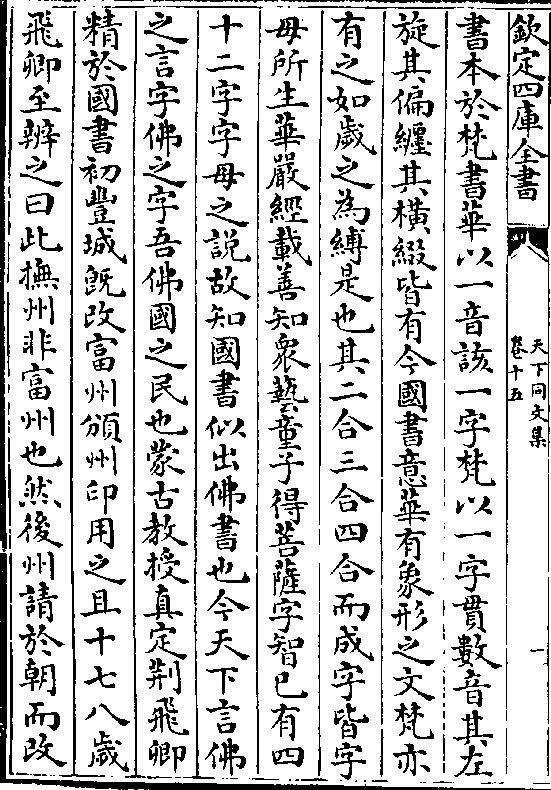 欽定四庫全書
天下同文集
卷十五
一
書本於梵書華以一音該一字梵以一字貫數音其左
旋其偏纒其横綴皆有今國書意華有象形之文梵亦
有之如歲之為縛是也其二合三合四合而成字皆字
母所生華嚴經載善知衆藝童子得菩薩字智已有四
十二字字母之說故知國書似出佛書也今天下言佛
之言字佛之字吾佛國之民也蒙古教授真定荆飛卿
精於國書初豐城旣改富州頒州印用之且十七八歲
飛卿至辨之曰此撫州非富州也然後州請於朝而改